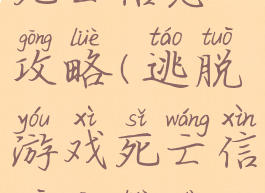 gōng lüè táo tuō
攻略(逃脱
yóu xì sǐ wáng xìn
游戏死亡信